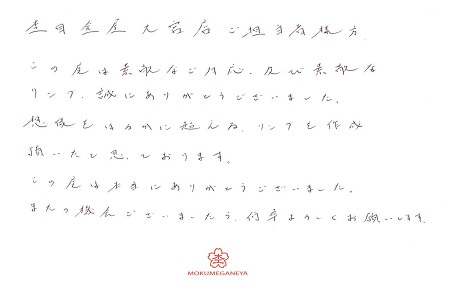 杢目金屋大宮店ご担当者様方
この度は素敵なご対応、及び素敵な
リング、誠にありがとうございました。
想像をはるかに超える、リングを作成
頂いたと思っております。
この度は本当にありがとうございました。
またの機会ございましたら、何卒よろしくお願いします。
杢
MOKUMEGANEYA